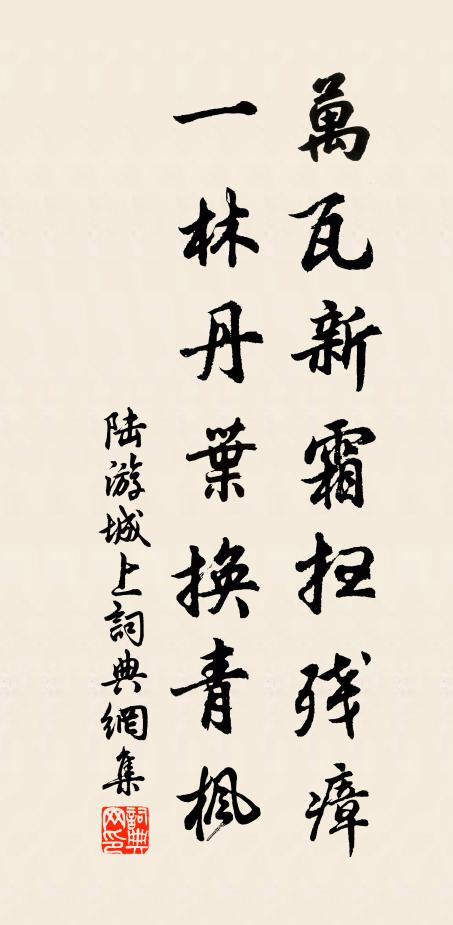 萬瓦新霜扫残瘴
一林丹葉換青楓
陆游城上詞典網集
詞典网印